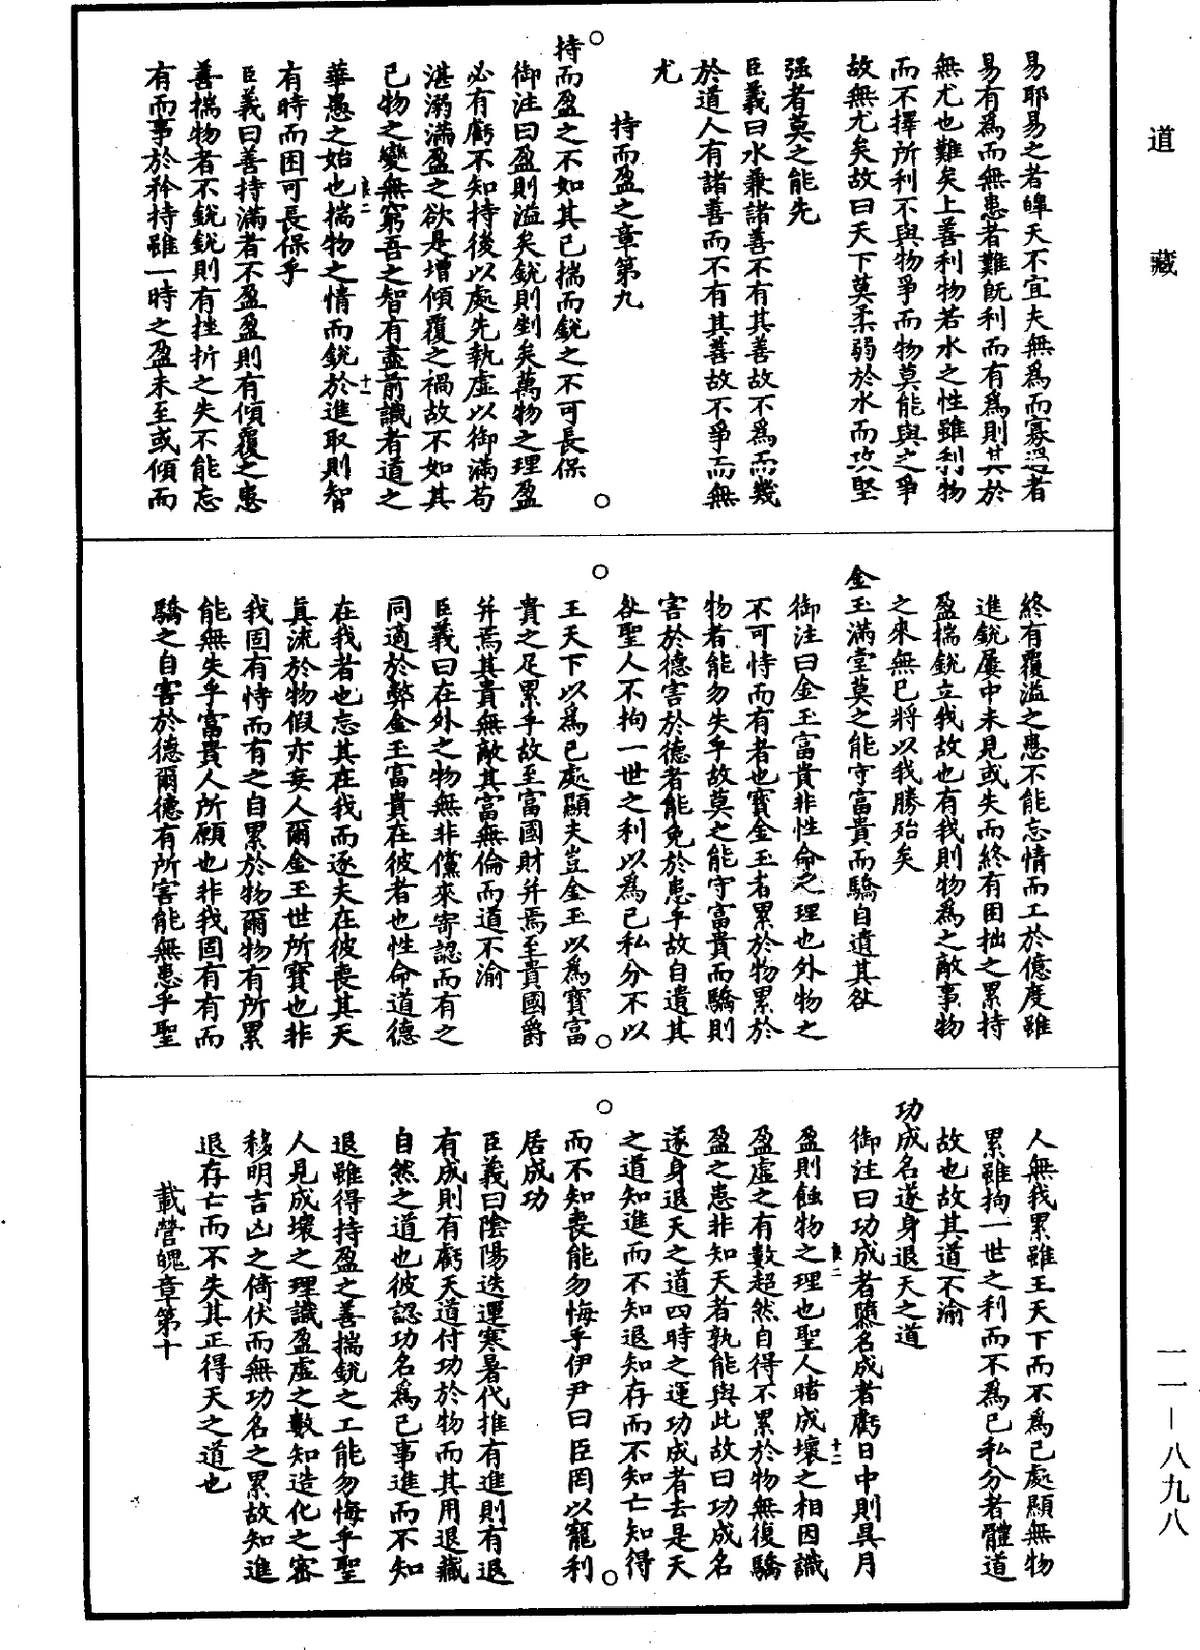 道藏
易耶易之者皡天不宜夫無為而寡過者
易有為而無患者難旣利而有為則其於
無尤也難矣上善利物若水之性雖利物
而不擇所利不與物爭而物莫能與之爭
故無尤矣故曰天下莫柔弱於水而攻堅
强者莫之能先
臣義曰水兼諸善不有其善故不為而幾
於道人有諸善而不有其善故不爭而無
尤
持而盈之章第九
持而盈之不如其已揣而銳之不可長保
御注曰盈則溢矣銳則剉矣萬物之理盈
必有虧不知持後以處先執虛以御滿苟
湛溺滿盈之欲是增傾覆之禍故不如其
已物之變無窮吾之智有盡前識者道之
華愚之始也揣物之情而銳於進取則智
有時而困可長保乎
臣義曰善持滿者不盈盈則有傾覆之患
善揣物者不銳銳則有挫折之失不能忘
有而事於矜持雖一時之盈未至或傾而
終有覆溢之患不能忘情而工於億度雖
進銳屢中未見或失而終有困拙之累持
盈揣銳立我故也有我則物為之敵事物
之來無已將以我勝殆矣
金玉滿堂莫之能守富貴而驕自遺其咎
御注曰金玉富貴非性命之理也外物之
不可恃而有者也寶金玉者累於物累於
物者能勿失乎故莫之能守富貴而驕則
害於德害於德者能免於患乎故自遺其
咎聖人不拘一世之利以為己私分不以
王天下以為己處顯夫豈金玉以為寶富
貴之足累乎故至富國財并焉至貴國爵
并焉其貴無敵其富無倫而道不渝
臣義曰在外之物無非儻來寄認而有之
同適於弊金玉富貴在彼者也性命道德
在我者也忘其在我而逐夫在彼喪其天
真流於物假亦妄人爾金玉世所寶也非
我固有恃而有之自累於物爾物有所累
能無失乎富貴人所願也非我固有有而
驕之自害於德爾德有所害能無患乎聖
人無我累雖王天下而不為己處顯無物
累雖拘一世之利而不為己私分者體道
故也故其道不渝
功成名遂身退天之道
御注曰功成者隳名成者虧日中則昃月
盈則蝕物之理也聖人睹成壞之相因識
盈虛之有數超然自得不累於物無復驕
盈之患非知天者孰能與此故曰功成名
遂身退天之道四時之運功成者去是天
之道知進而不知退知存而不知亡知得
而不知喪能勿悔乎伊尹曰臣罔以寵利
居成功
臣義曰陰陽迭運寒暑代推有進則有退
有成則有虧天道付功於物而其用退藏
自然之道也彼認功名為己事進而不知
退雖得持盈之善揣銳之工能勿悔乎聖
人見成壞之理識盈虛之數知造化之密
移明吉凶之倚伏而無功名之累故知進
退存亡而不失其正得天之道也
載營魄章第十
一一—八九八